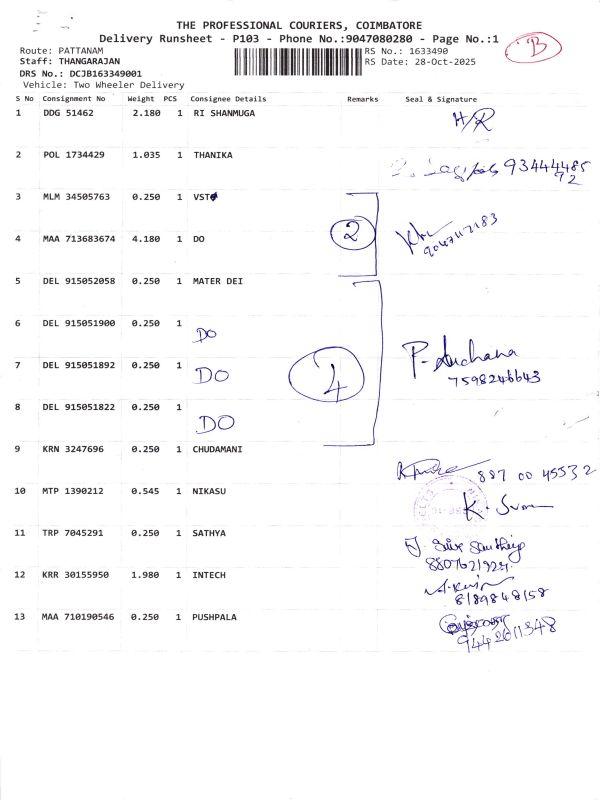 THE PROFESSIONAL COURIERS, COIMBATORE
Delivery Runsheet - P103 - Phone No.:9047080280 - Page No.:1
B
Route: PATTANAM
RS No.: 1633490
Staff: THANGARAJAN
RS Date: 28-Oct-2025
DRS No.: DCJB163349001
Vehicle: Two Wheeler Delivery
S No Consignment No Weight PCS Consignee Details Remarks Seal & Signature
1 DDG 51462 2.180 1 RI SHANMUGA H/R
2 POL 1734429 1.035 1 THANIKA
3 MLM 34505763 0.250 1 VST
2
4 MAA 713683674 4.180 1 DO
5 DEL 915052058 0.250 1 MATER DEI
6 DEL 915051900 0.250 1 DO
7 DEL 915051892 0.250 1 DO 4
7598246643
8 DEL 915051822 0.250 1 DO
9 KRN 3247696 0.250 1 CHUDAMANI 887 00 45532
10 MTP 1390212 0.545 1 NIKASU
11 TRP 7045291 0.250 1 SATHYA
12 KRR 30155950 1.980 1 INTECH
8189848158
13 MAA 710190546 0.250 1 PUSHPALA